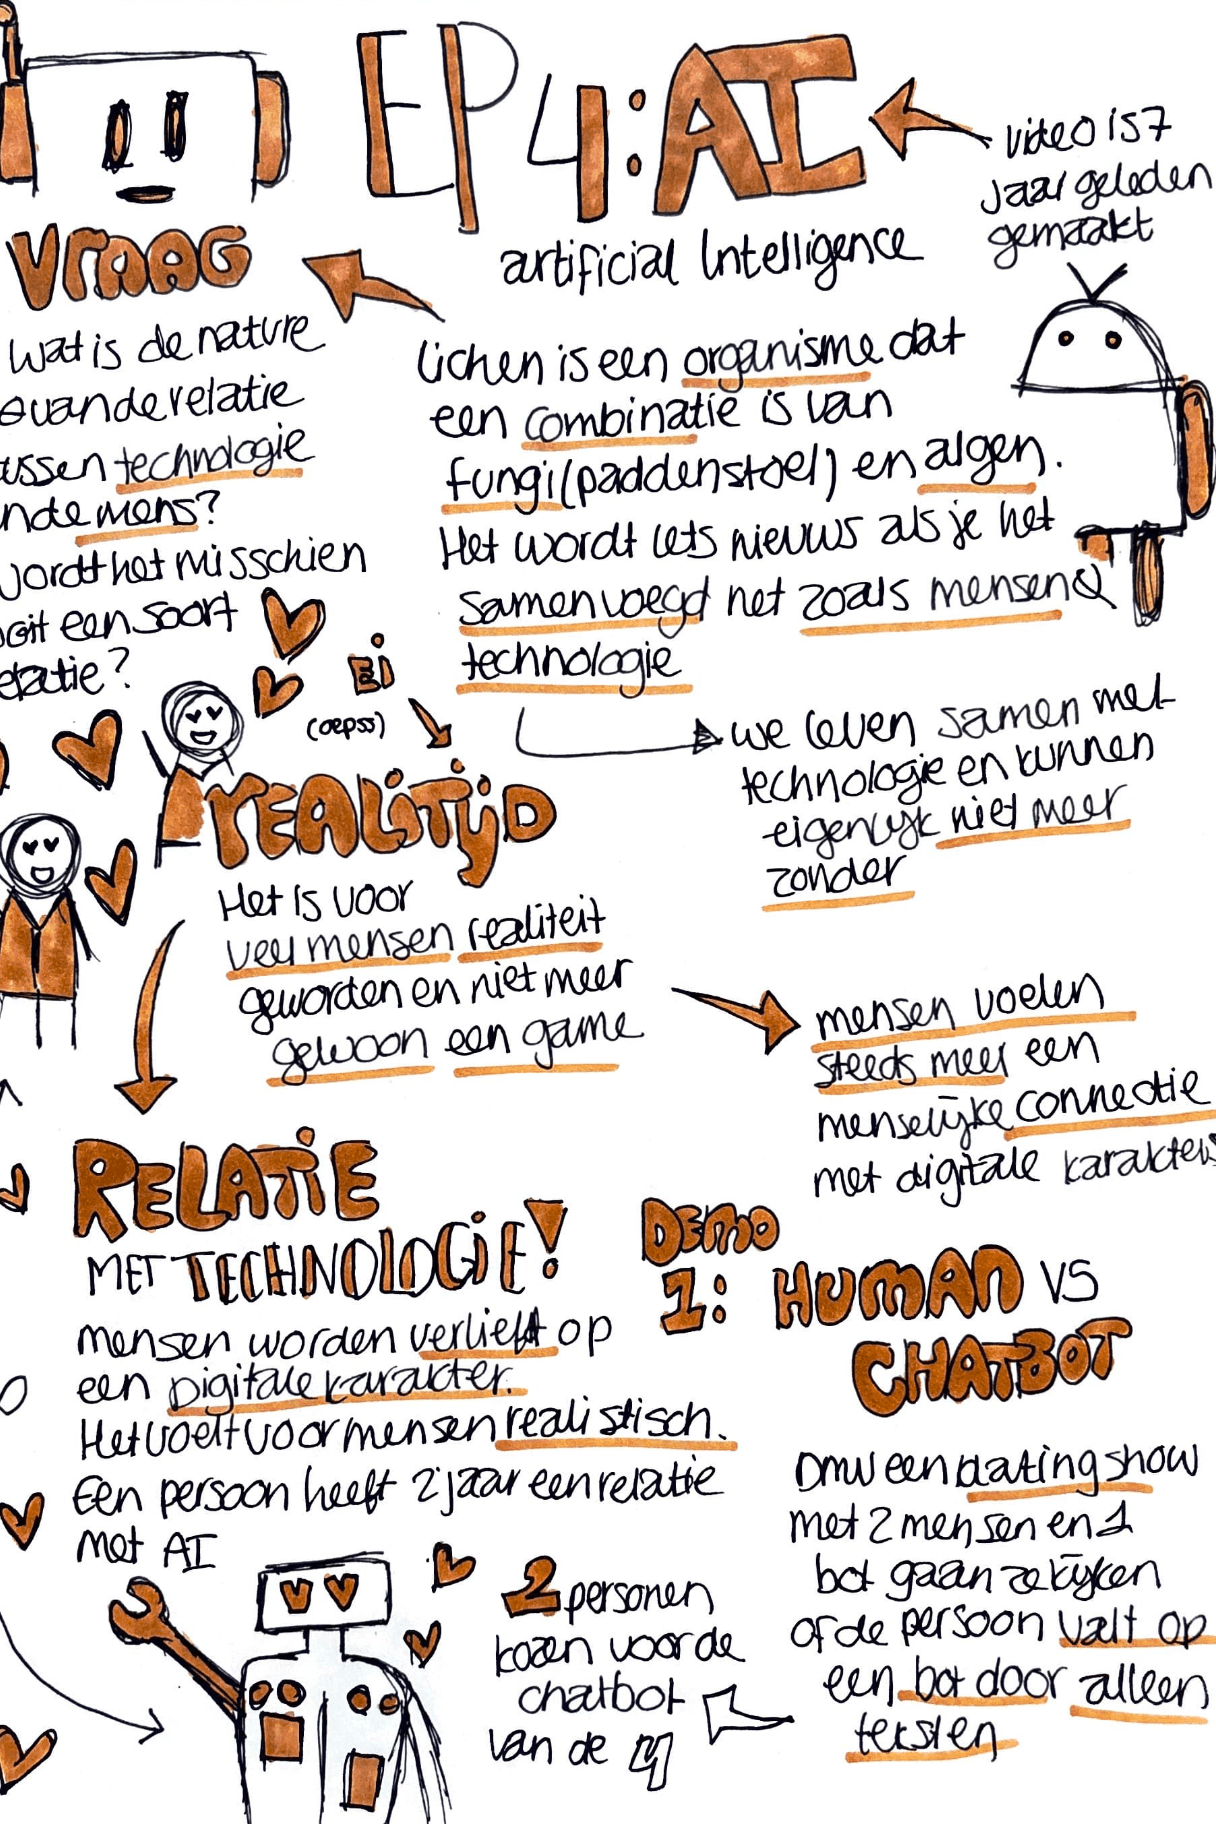 EP 4: AI
artificial Intelligence
video is 7
jaar geleden
gemaakt
VRAAG
wat is de nature
e van de relatie
ussen technologie
n de mens?
wordt het misschien
ooit een soort
relatie?
lichen is een organisme dat
een combinatie is van
fungi (paddenstoel) en algen.
Het wordt iets nieuws als je het
samenvoegd net zoals mensen &
technologie
we leven samen met
technologie en kunnen
eigenlijk niet meer
zonder
Ei
(oepss)
REALITIJD
Het is voor
veel mensen realiteit
geworden en niet meer
gewoon een game
mensen voelen
steeds meer een
menselijke connectie
met digitale karakters
RELATIE
MET TECHNOLOGIE!
mensen worden verlieft op
een Digitale karakter.
Het voelt voor mensen realistisch.
Een persoon heeft 2 jaar een relatie
met AI
DEMO
1: HUMAN VS
CHATBOT
Dmv een dating show
met 2 mensen en 1
bot gaan ze kijken
of de persoon valt op
een bot door alleen
teksten
2 personen
kozen voor de
chatbot
van de 4